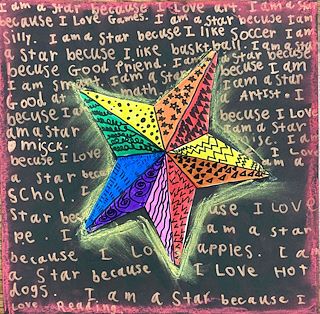 I am a Star because I Love art. I am a Star
because I Love Games. I am a Star becuse I am
Silly I am a Star becuse I like Soccer I am
a Star becuse I like basketball. I am a Star
becuse Good friend. I am a Star becuse
I am Smart. I am a Star becuse I am
Good at math. I am a Star
becuse I am Artist. I
am a Star becuse I Love
misck. I am a Star
becuse I Love I Love
a Star becuse I am a
Schol.
Star be cuse I Love
pe I I am a Star
because I Lo apples. I am
a Star because I Love Hot
dogs. I am a Star because I
Love Reading.